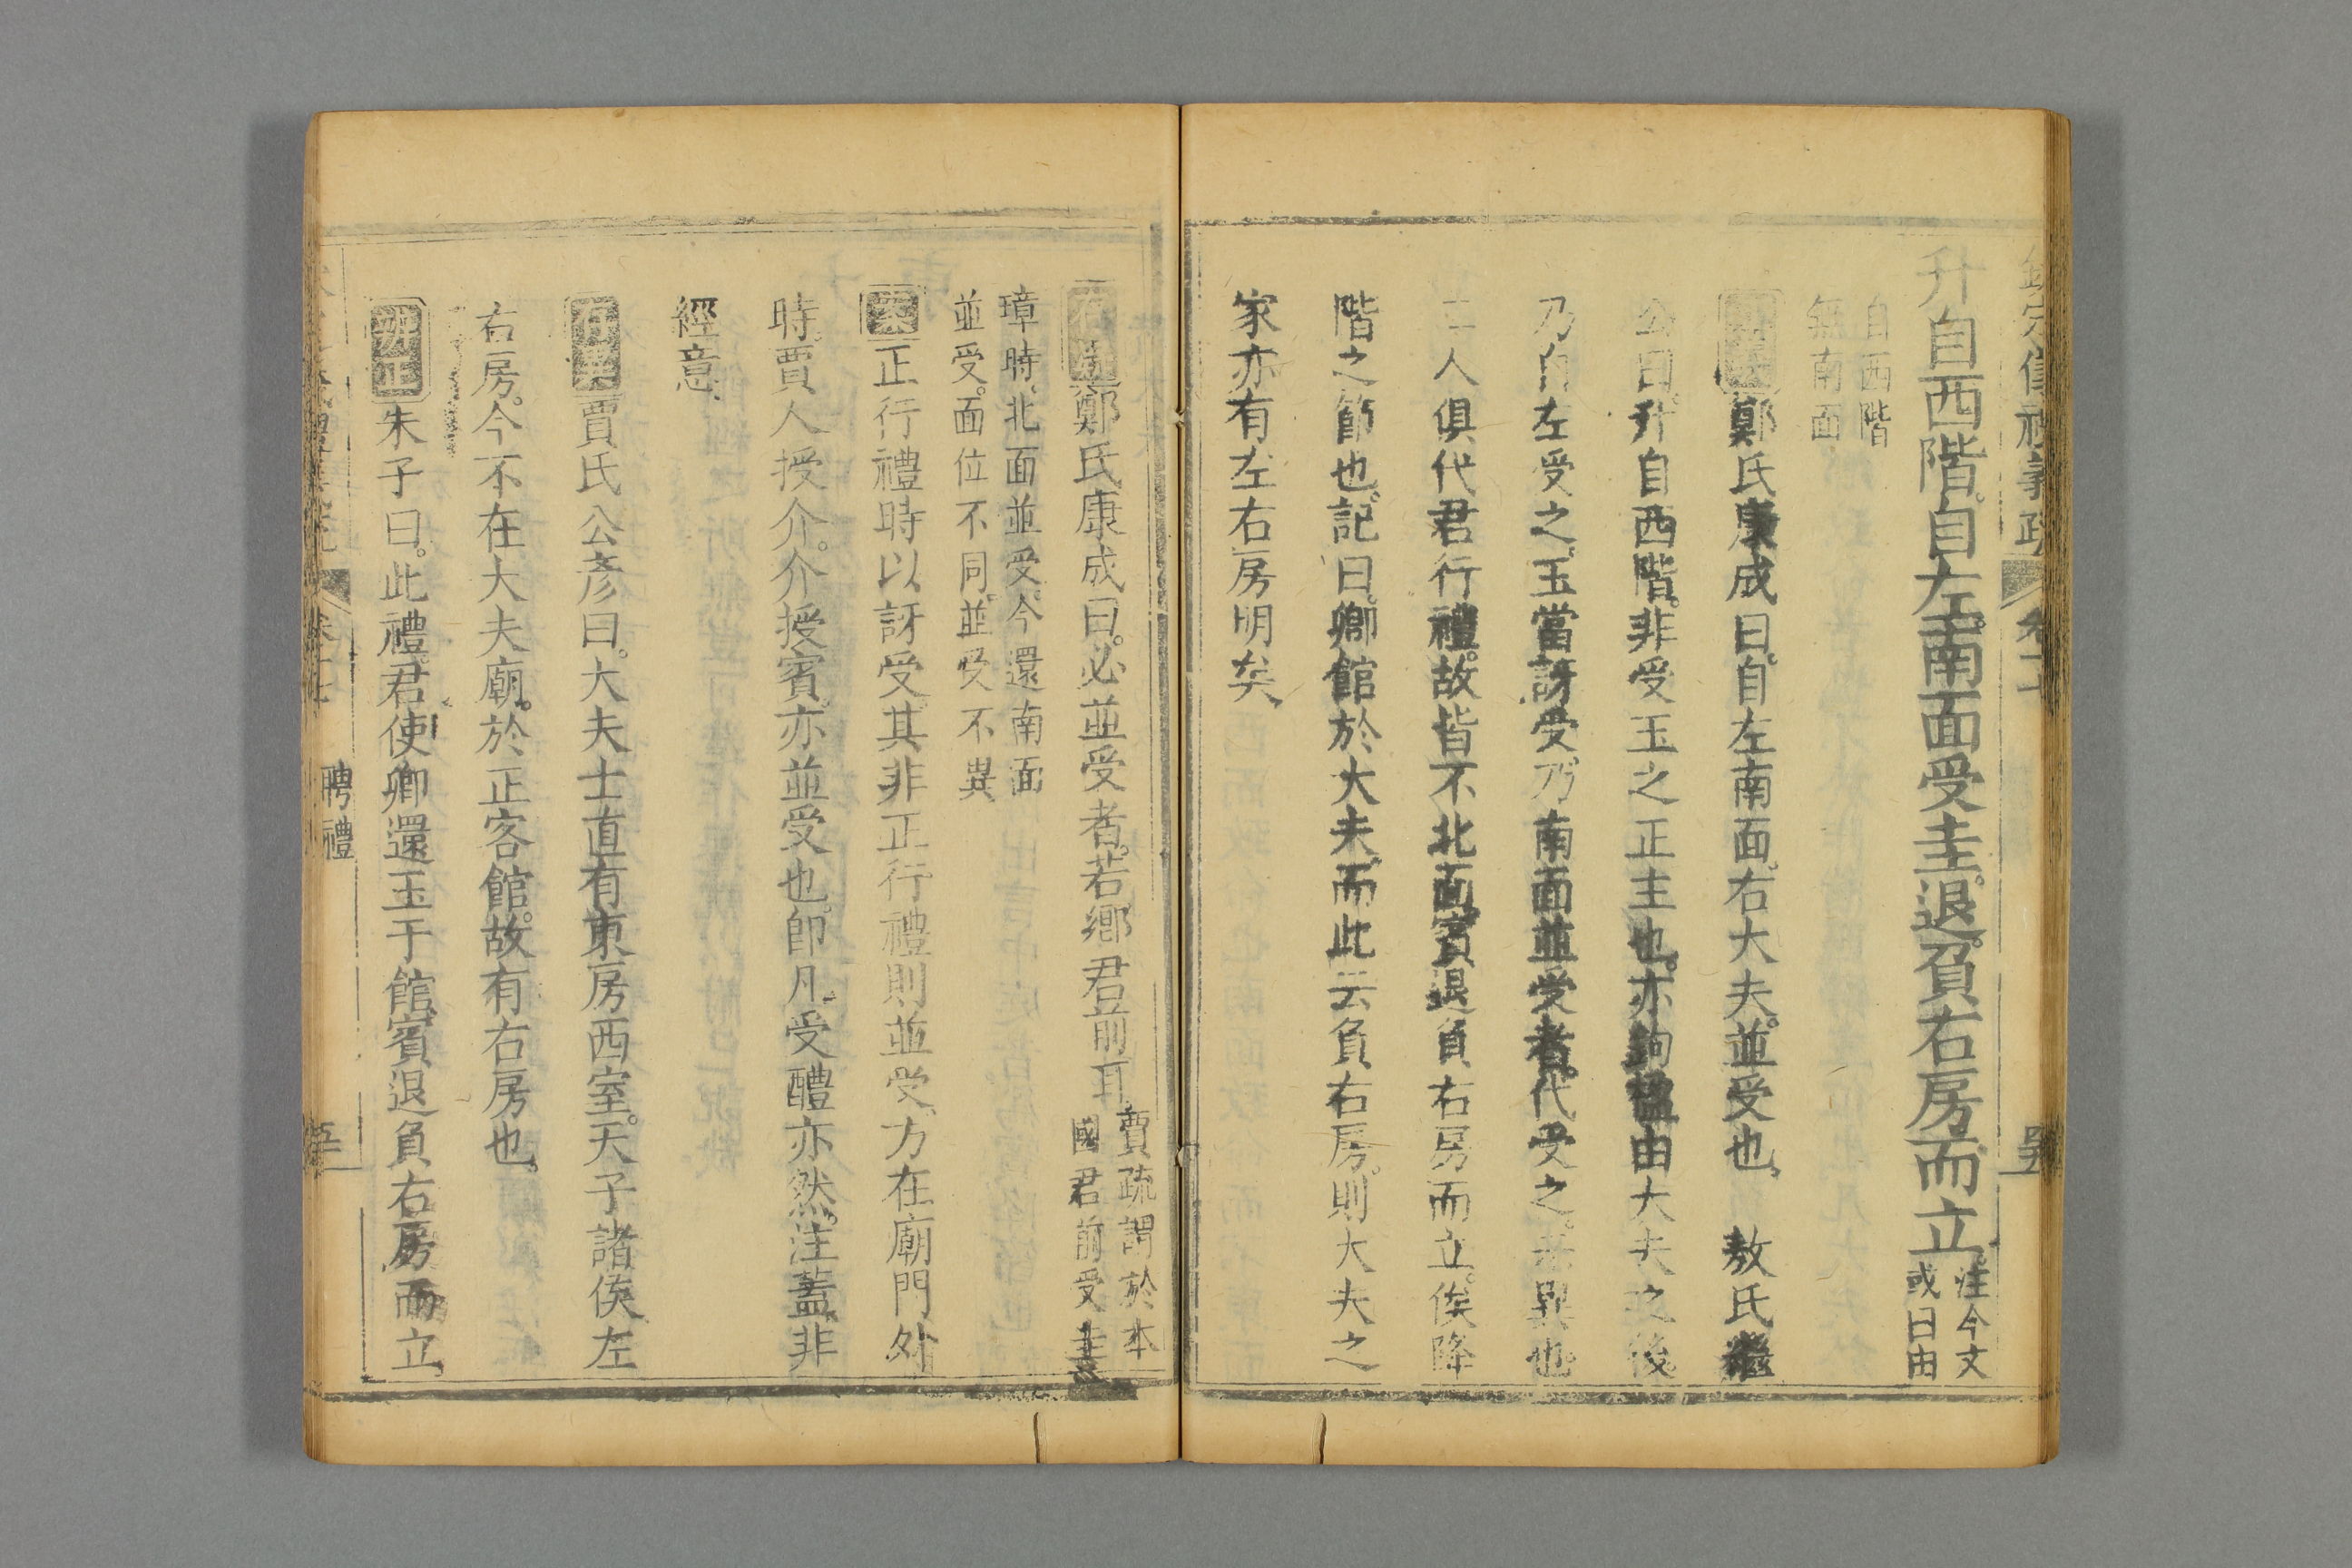 升自西階。自左。南面受圭。退。負右房而立。注今文
或曰由
自西階
無南面
鄭氏康成曰。自左南面。右大夫。並受也。 敖氏繼
公曰。升自西階。非受玉之正主也。亦鉤楹由大夫之後。
乃自左受之。玉當訝受。乃南面並受者。代受之。差異也。
二人俱代君行禮。故皆不北面。賓退負右房而立。俟降
階之節也。記曰。卿館於大夫。而此云負右房。則大夫之
家亦有左右房明矣
鄭氏康成曰。必並受者。若鄉君前耳。賈疏謂於本
國君前受圭
璋時。北面並受。今還南面
並受。面位不同。並受不異
案正行禮時以訝受。其非正行禮則並受。方在廟門外
時。賈人授介。介授賓。亦並受也。卽凡受醴亦然。注蓋非
經意
賈氏公彥曰。大夫士直有東房西室。天子諸侯左
右房。今不在大夫廟。於正客館。故有右房也。
朱子曰。此禮。君使卿還玉于館。賓退負右房而立。
聘禮